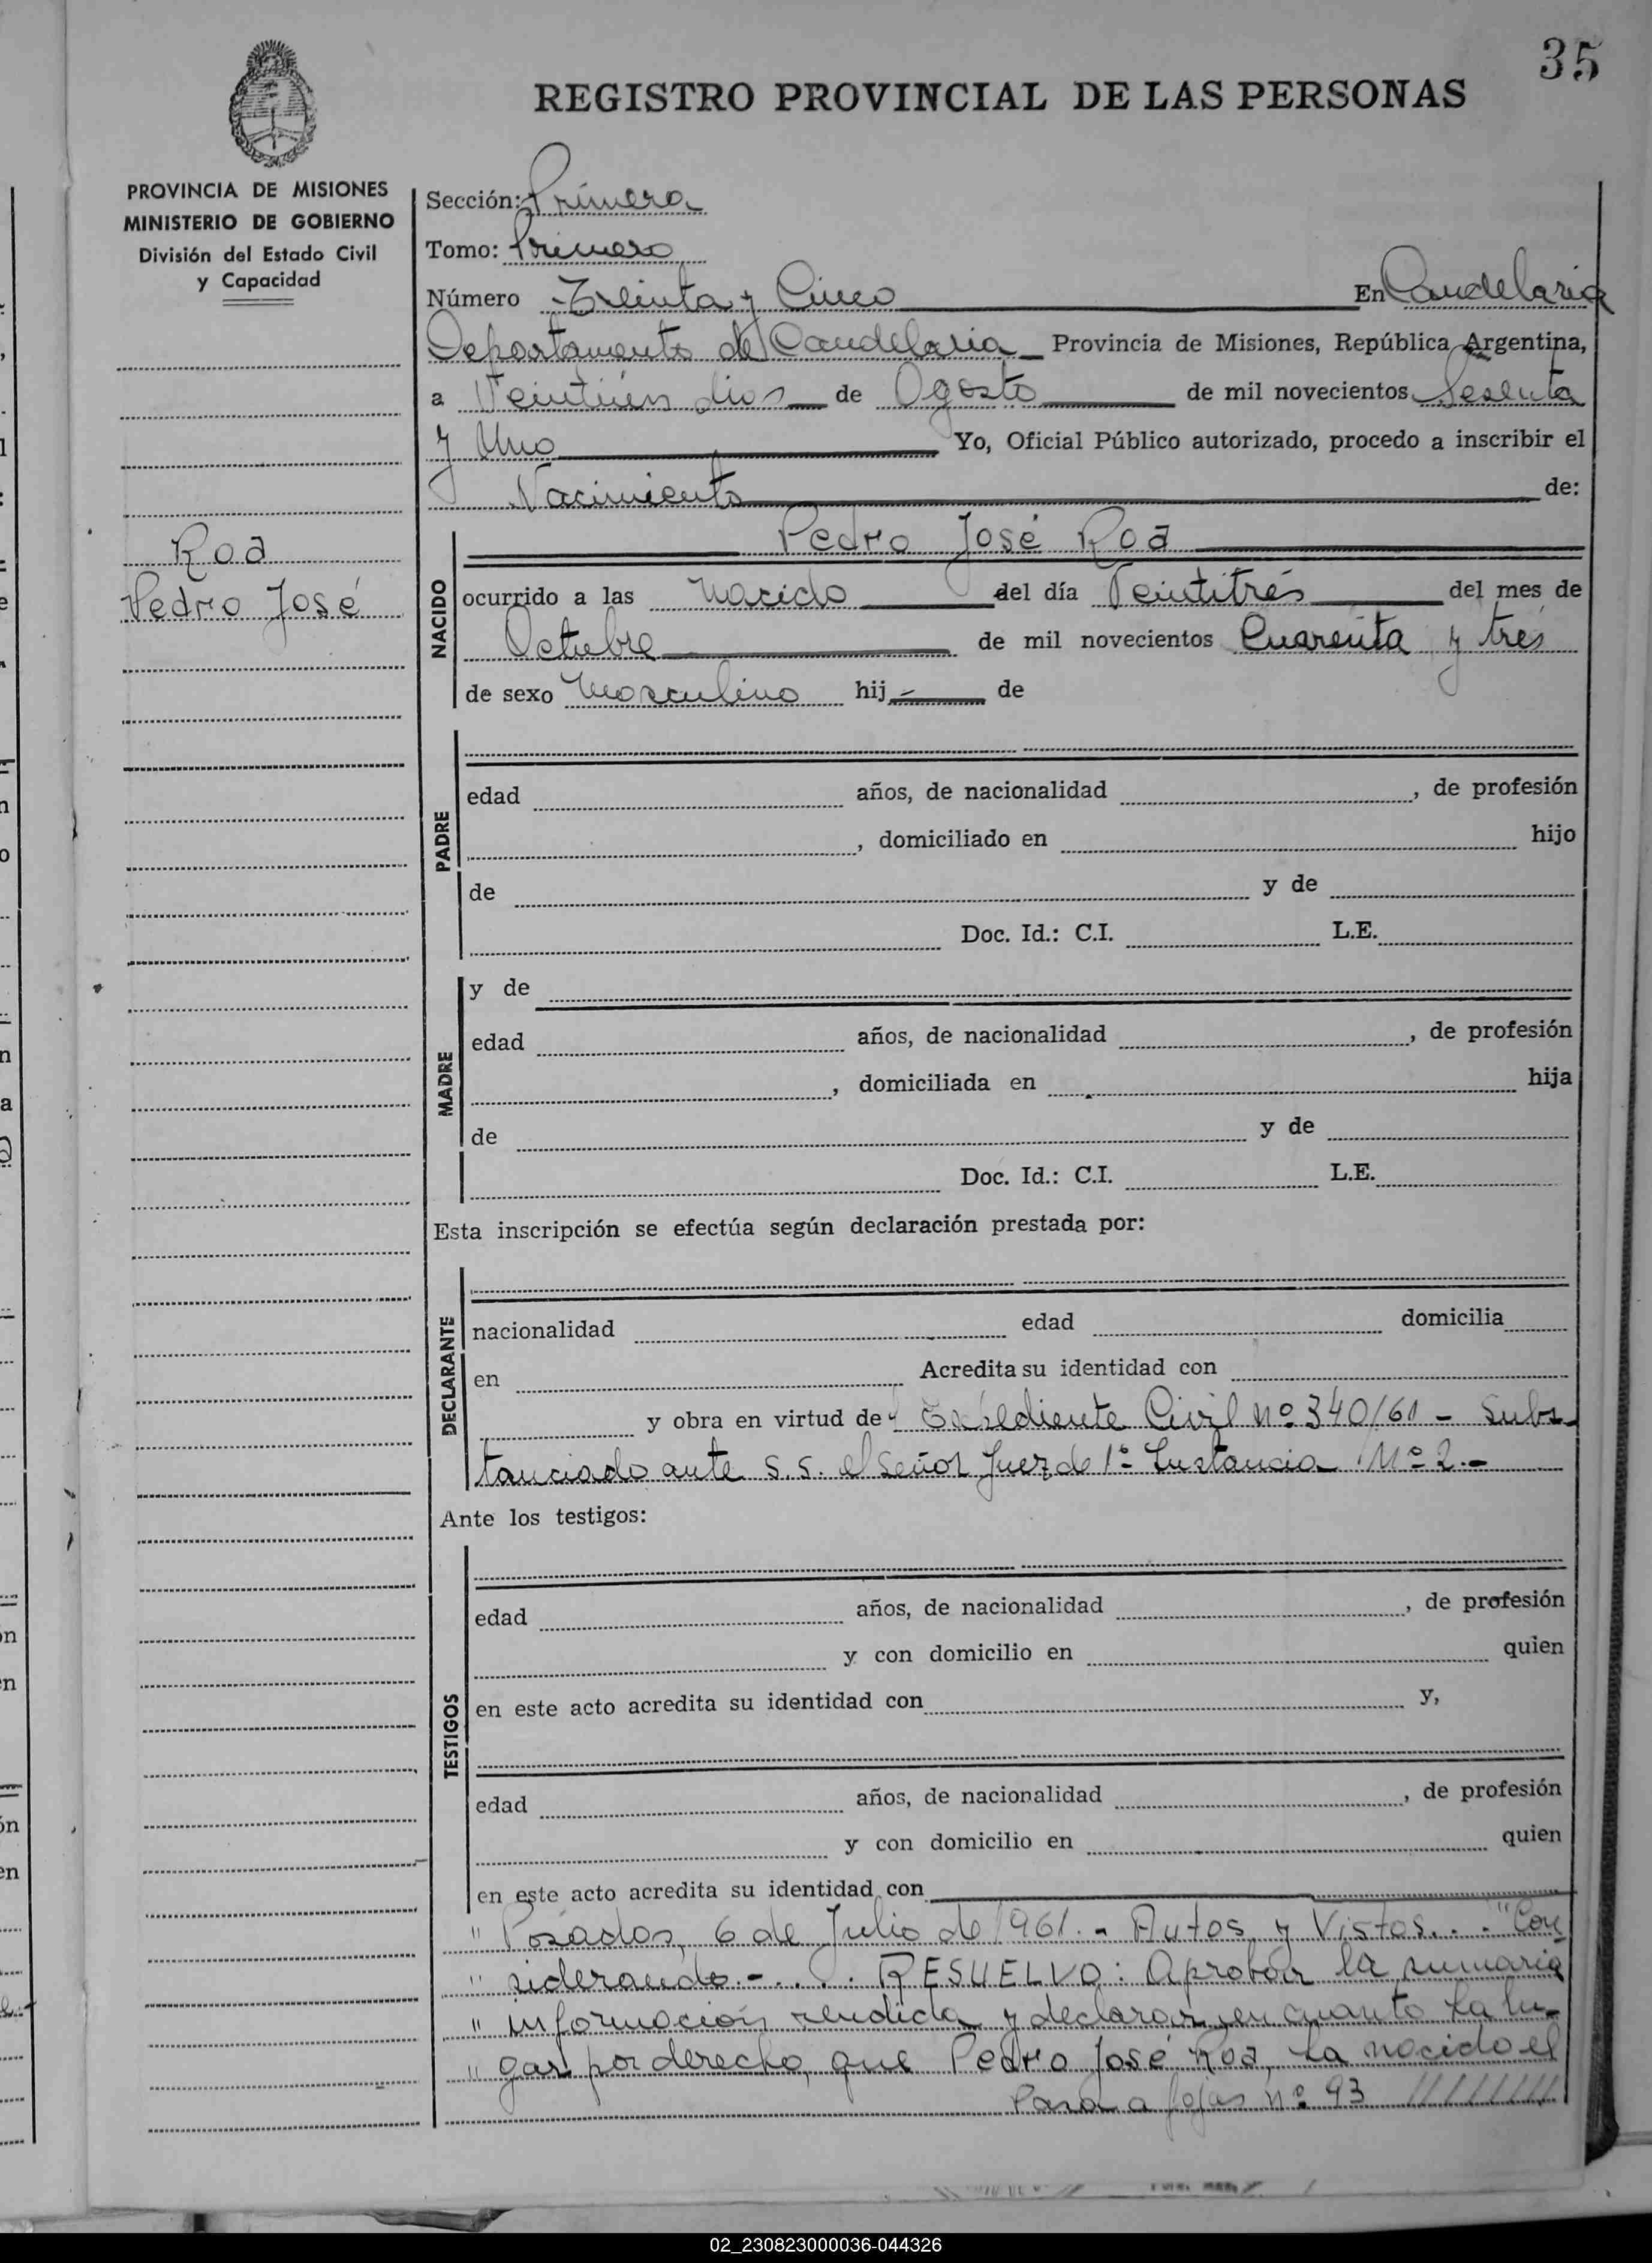 35
REGISTRO PROVINCIAL DE LAS PERSONAS
PROVINCIA DE MISIONES
MINISTERIO DE GOBIERNO
División del Estado Civil
y Capacidad
Roa
Pedro José
Sección: Primera
Tomo: Primero
Número Treinta y Cinco En Candelaria
Departamento de Candelaria Provincia de Misiones, República Argentina,
a dias de Agosto de mil novecientos Sesenta
y Uno Yo, Oficial Público autorizado, procedo a inscribir el
Nacimiento de:
NACIDO
Pedro José Roa
ocurrido a las nacido del día Veintitrés del mes de
Octubre de mil novecientos Cuarenta y tres
de sexo Masculino hij de
PADRE
edad años, de nacionalidad , de profesión
, domiciliado en hijo
de y de
Doc. Id.: C.I. L.E.
MADRE
y de
edad años, de nacionalidad , de profesión
, domiciliada en hija
de y de
Doc. Id.: C.I. L.E.
Esta inscripción se efectúa según declaración prestada por:
DECLARANTE
nacionalidad edad domicilia
en Acredita su identidad con
y obra en virtud de Expediente Civil Nº 340/61 - Subs
tanciado ante S.S. el Señor Juez de 1ª Instancia Nº 2.-
Ante los testigos:
TESTIGOS
edad años, de nacionalidad , de profesión
y con domicilio en quien
en este acto acredita su identidad con y,
edad años, de nacionalidad , de profesión
y con domicilio en quien
en este acto acredita su identidad con
" Posadas, 6 de Julio de 1961.- Autos y Vistos... "Con
" siderando.-.... RESUELVO: Aprobar la sumaria
" información rendida y declarar en cuanto ha lu-
" gar por derecho, que Pedro José Roa, ha nacido el
Pasa a fojas nº 93 /////////
02_230823000036-044326